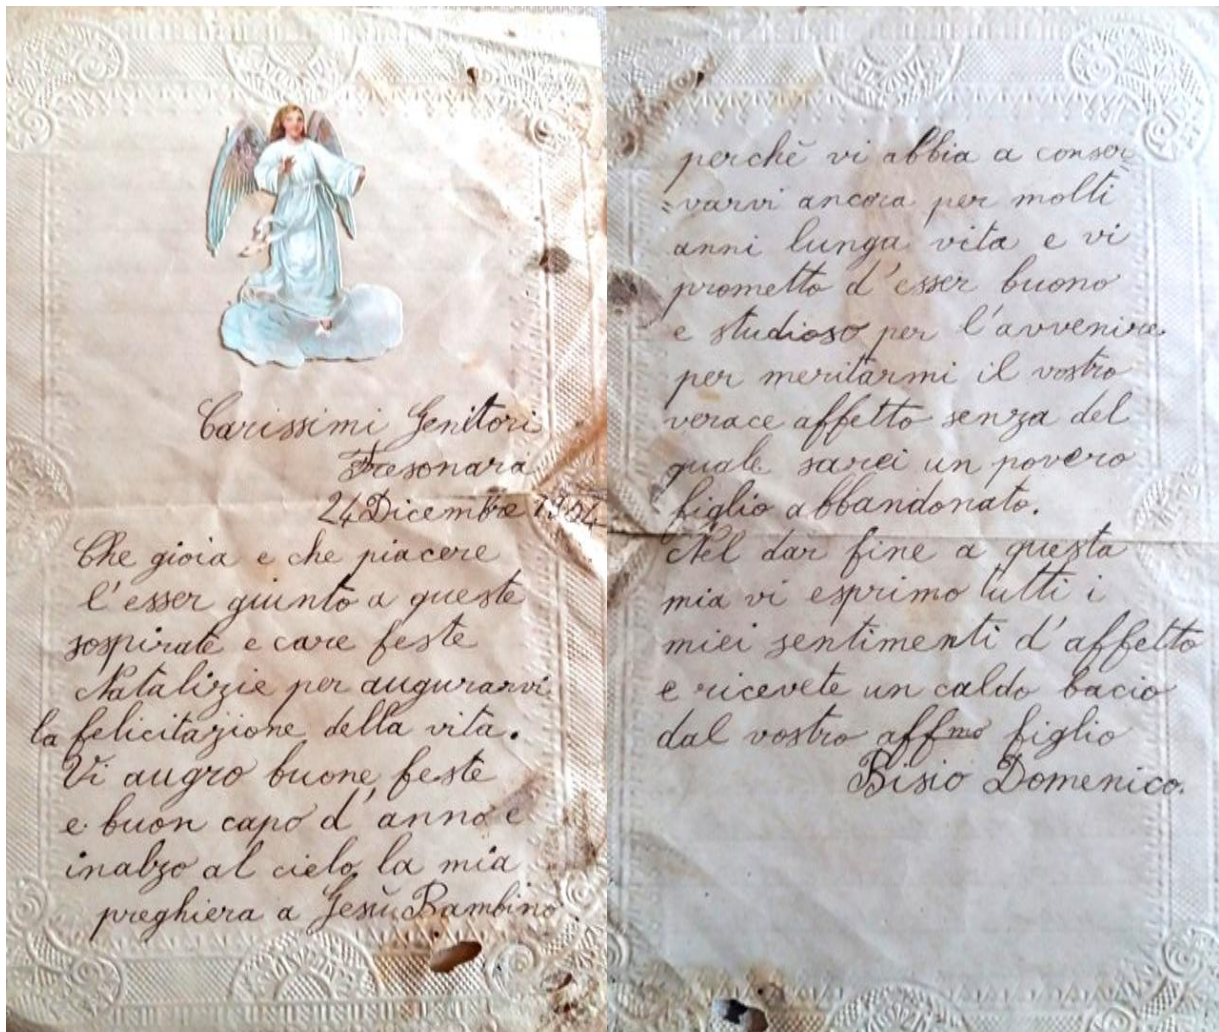 Carissimi Genitori
Fresonara
24 Dicembre
Che gioia e che piacere
l'esser giunto a queste
sospirate e care feste
Natalizie per augurarvi
la felicitazione della vita.
Vi augro buone feste
e buon capo d'anno e
inalzo al cielo la mia
preghiera a Gesù Bambino
perchè vi abbia a conser
"varvi ancora per molti
anni lunga vita e vi
prometto d'esser buono
e studioso per l'avvenire
per meritarmi il vostro
verace affetto senza del
quale sarei un povero
figlio abbandonato.
Nel dar fine a questa
mia vi esprimo tutti i
miei sentimenti d'affetto
e ricevete un caldo bacio
dal vostro affmo figlio
Bisio Domenico.